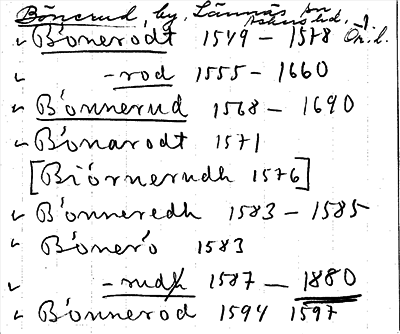 Bönerud, by, Lännäs sn
Askers hd, Ör. l.
Bönerodt 1549 – 1578
– rod 1555 – 1660
Bönnerud 1568 – 1690
Bönarodt 1571
[Biörnerudh 1576]
Bönneredh 1583 – 1585
Bönerö 1583
– rudh 1587 – 1880
Bönnerod 1594 1597